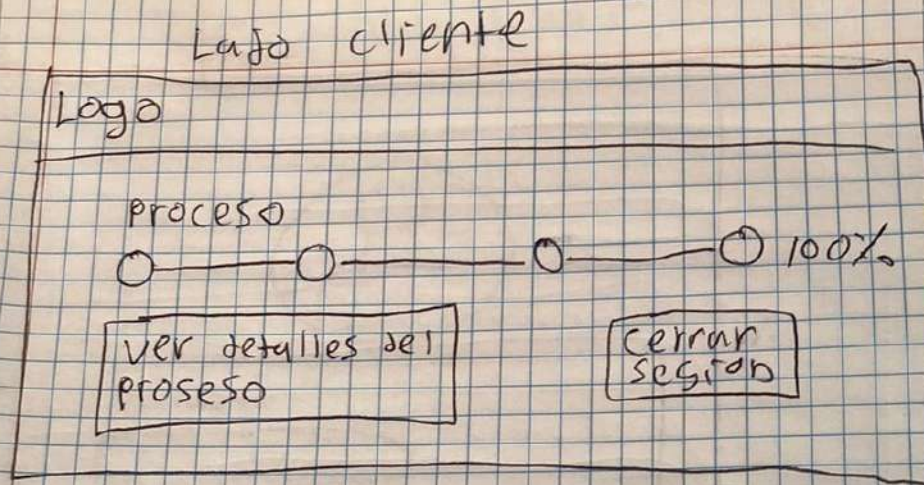 Lado cliente
Logo
proceso
100%
ver detalles del
proseso
cerrar
sesion